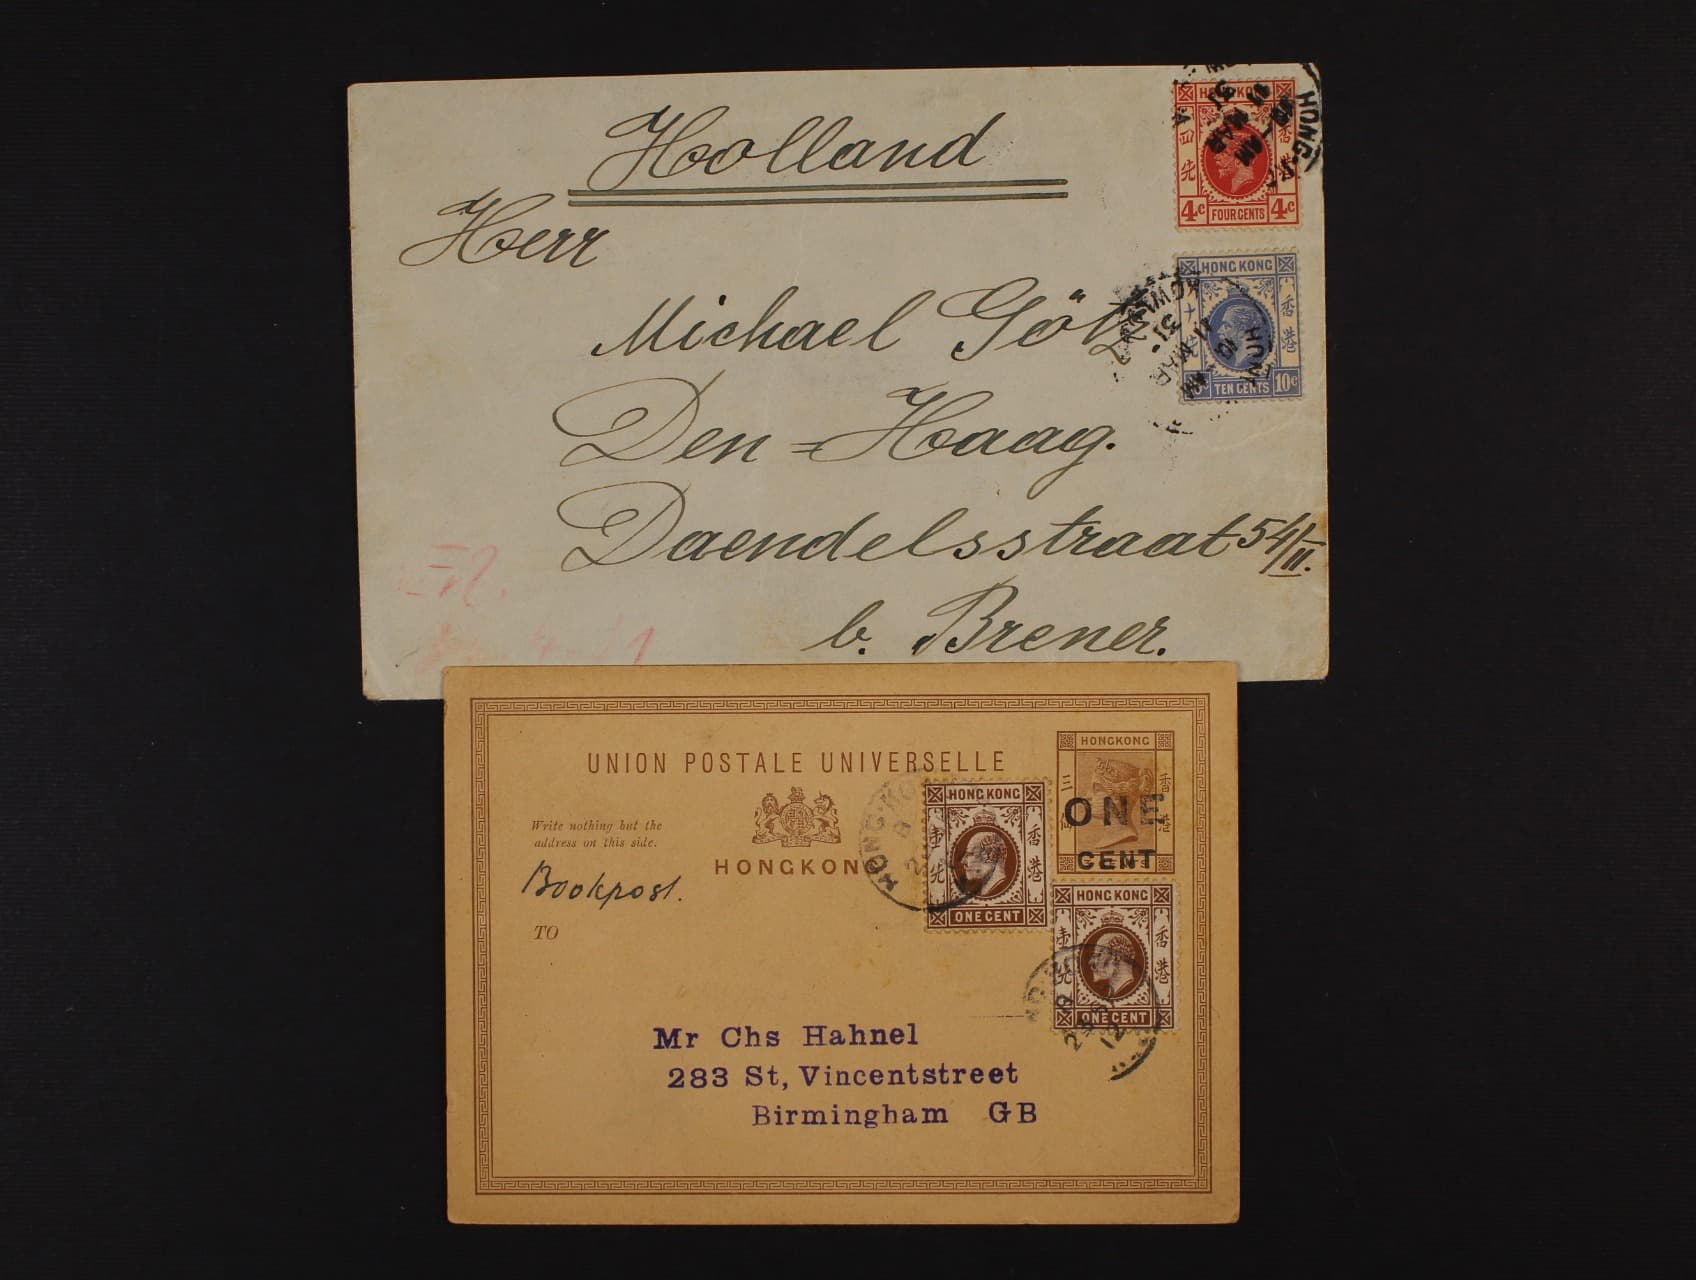 Holland
Herr
Michael Götz
Den=Haag.
Daendelsstraat 54/II.
b. Brener.
HONG KONG
香港
四先
4c FOUR CENTS 4c
HONG KONG
香港
10c TEN CENTS 10c
11 MAR
31
UNION POSTALE UNIVERSELLE
Write nothing but the
address on this side.
HONGKONG
Bookpost.
TO
HONGKONG
ONE
CENT
HONG KONG
香港
壹先
ONE CENT
HONG KONG
香港
壹先
ONE CENT
HONG KO
Mr Chs Hahnel
283 St, Vincentstreet
Birmingham GB